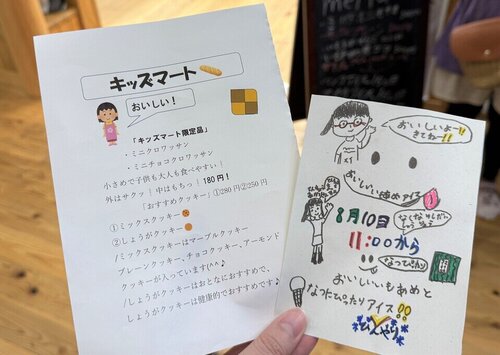 キッズマート
おいしい!
「キッズマート限定品」
・ミニクロワッサン
・ミニチョコクロワッサン
小さめで子供も大人も食べやすい!
外はサクッ!中はもちっ!180円!
「おすすめクッキー」①280円②250円
①ミックスクッキー
②しょうがクッキー
/ミックスクッキーはマーブルクッキー
プレーンクッキー、チョコクッキー、アーモンド
クッキーが入っています(^^♪
/しょうがクッキーはおとなにおすすめで、
しょうがクッキーは健康的でおすすめです♪
おいしいよー!!
きてねー!!
おいしい
アイス
8月10日
11:00から
なつにぴったり
おいしいもあめと
なつにぴったりアイス!!
ひんやり